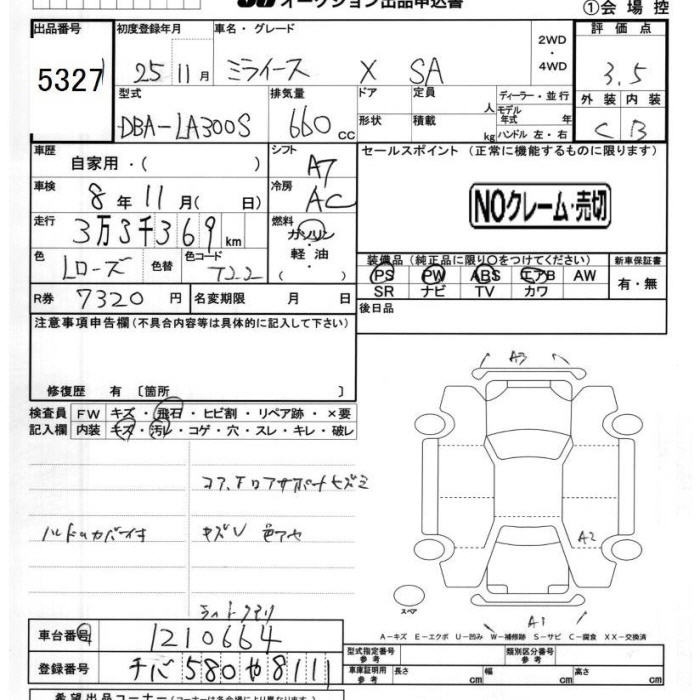 オークション出品申込書
①会場控
出品番号 初度登録年月 車名・グレード 2WD・4WD 評価点
5327 25 11月 ミライース X SA 3.5
型式 排気量 ドア 定員 人 ディーラー・並行 外装 内装
DBA-LA300S 660cc 形状 積載 kg モデル年式 年 ハンドル 左・右 C B
車歴 自家用・( ) シフト A7 セールスポイント (正常に機能するものに限ります)
車検 8年11月( 日) 冷房 AC NOクレーム・売切
走行 3万3千369km 燃料 ガソリン・軽油 ( )
色 Lローズ 色替 色コード T22 装備品(純正品に限り○をつけてください) 新車保証書
PS PW ABS エアB AW 有・無
SR ナビ TV カワ
R券 7320円 名変期限 月 日 後日品
注意事項申告欄(不具合内容等は具体的に記入して下さい)
修復歴 有〔箇所 〕
検査員 FW キズ・飛石・ヒビ割・リペア跡・×要
記入欄 内装 キズ・汚レ・コゲ・穴・スレ・キレ・破レ
コア、F ロアサポートヒズミ
ハンドルカバー付
キズV 色アセ
ライトクモリ
A3
A2
A1
スペア
A-キズ E-エクボ U-凹み W-補修跡 S-サビ C-腐食 XX-交換済
車台番号 1210664
型式指定番号 参考 類別区分番号 参考
登録番号 チバ 580 や 8111
車庫証明用 参考 長さ cm 幅 cm 高さ cm
希望出品コーナー(コーナーは各会場により異なります)